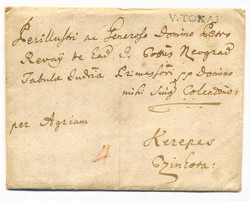 V. TOKAJ
Perillustri ac Generoso Domino Petro
Revaÿ de Ead I. Cottus Neograd
Tabula Judria Primessori pp Domino
mihi Sing Colendmo:
per Agriam
4
Kerepes
Czinkota: